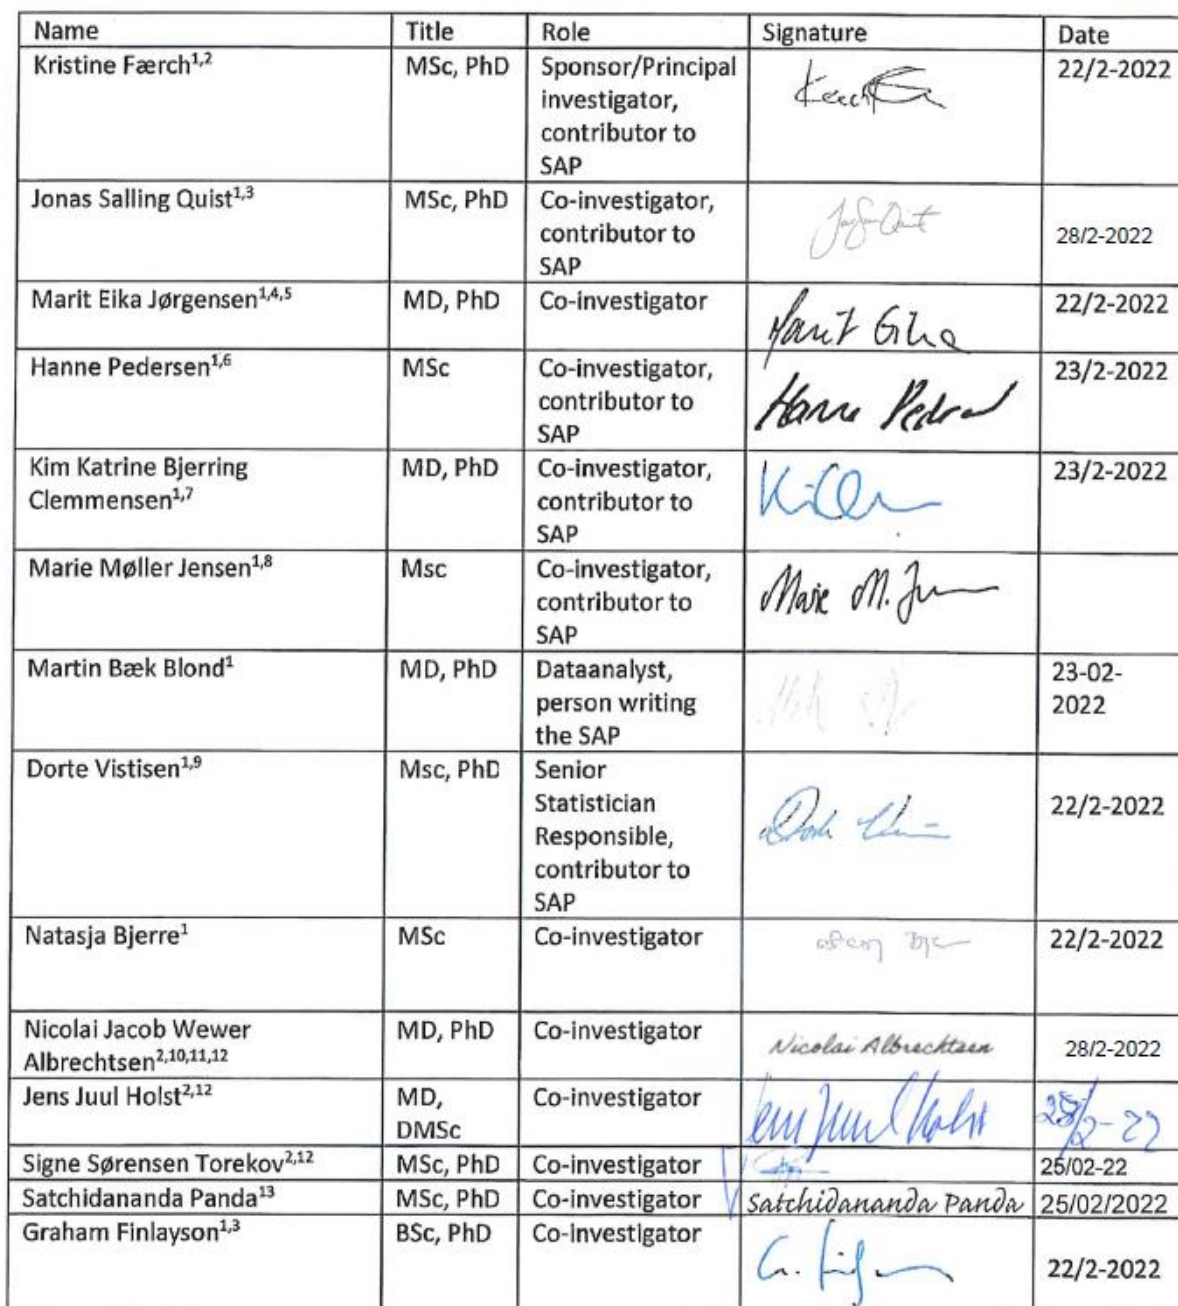 Name Title Role Signature Date
Kristine Færch¹,² MSc, PhD Sponsor/Principal 22/2-2022
investigator,
contributor to
SAP
Jonas Salling Quist¹,³ MSc, PhD Co-investigator,
contributor to 28/2-2022
SAP
Marit Eika Jørgensen¹,⁴,⁵ MD, PhD Co-investigator 22/2-2022
Marit Eika
Hanne Pedersen¹,⁶ MSc Co-investigator, 23/2-2022
contributor to Hanne Pedersen
SAP
Kim Katrine Bjerring MD, PhD Co-investigator, 23/2-2022
Clemmensen¹,⁷ contributor to
SAP
Marie Møller Jensen¹,⁸ Msc Co-investigator,
contributor to Marie M. Jensen
SAP
Martin Bæk Blond¹ MD, PhD Dataanalyst, 23-02-
person writing 2022
the SAP
Dorte Vistisen¹,⁹ Msc, PhD Senior
Statistician 22/2-2022
Responsible,
contributor to
SAP
Natasja Bjerre¹ MSc Co-investigator 22/2-2022
Nicolai Jacob Wewer MD, PhD Co-investigator Nicolai Albrechtsen 28/2-2022
Albrechtsen²,¹⁰,¹¹,¹²
Jens Juul Holst²,¹² MD, Co-investigator Jens Juul Holst
DMSc
Signe Sørensen Torekov²,¹² MSc, PhD Co-investigator 25/02-22
Satchidananda Panda¹³ MSc, PhD Co-investigator Satchidananda Panda 25/02/2022
Graham Finlayson¹,³ BSc, PhD Co-investigator
22/2-2022